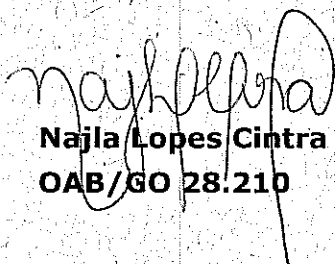 Najla Lopes Cintra
OAB/GO 28.210